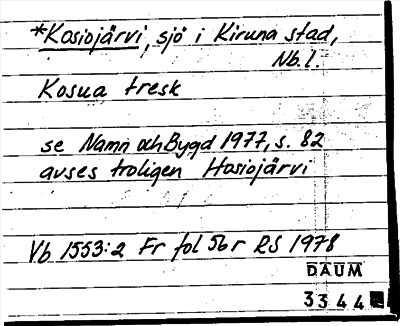 *Kosiojärvi, sjö i Kiruna stad,
Nb.l.
Kosua tresk
se Namn och Bygd 1977, s. 82
avses troligen Hosiojärvi
Vb 1553:2 Fr fol 56r RS 1978
DAUM
3344